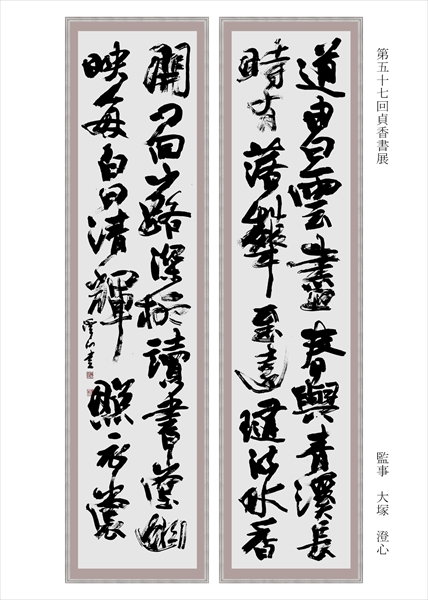 第五十七回貞香書展
監事 大塚 澄心
道由白雲盡春與青溪長
時有落華至遠隨流水香
閒門向山路深柳讀書堂幽
映每白日清輝照衣裳
澄心書